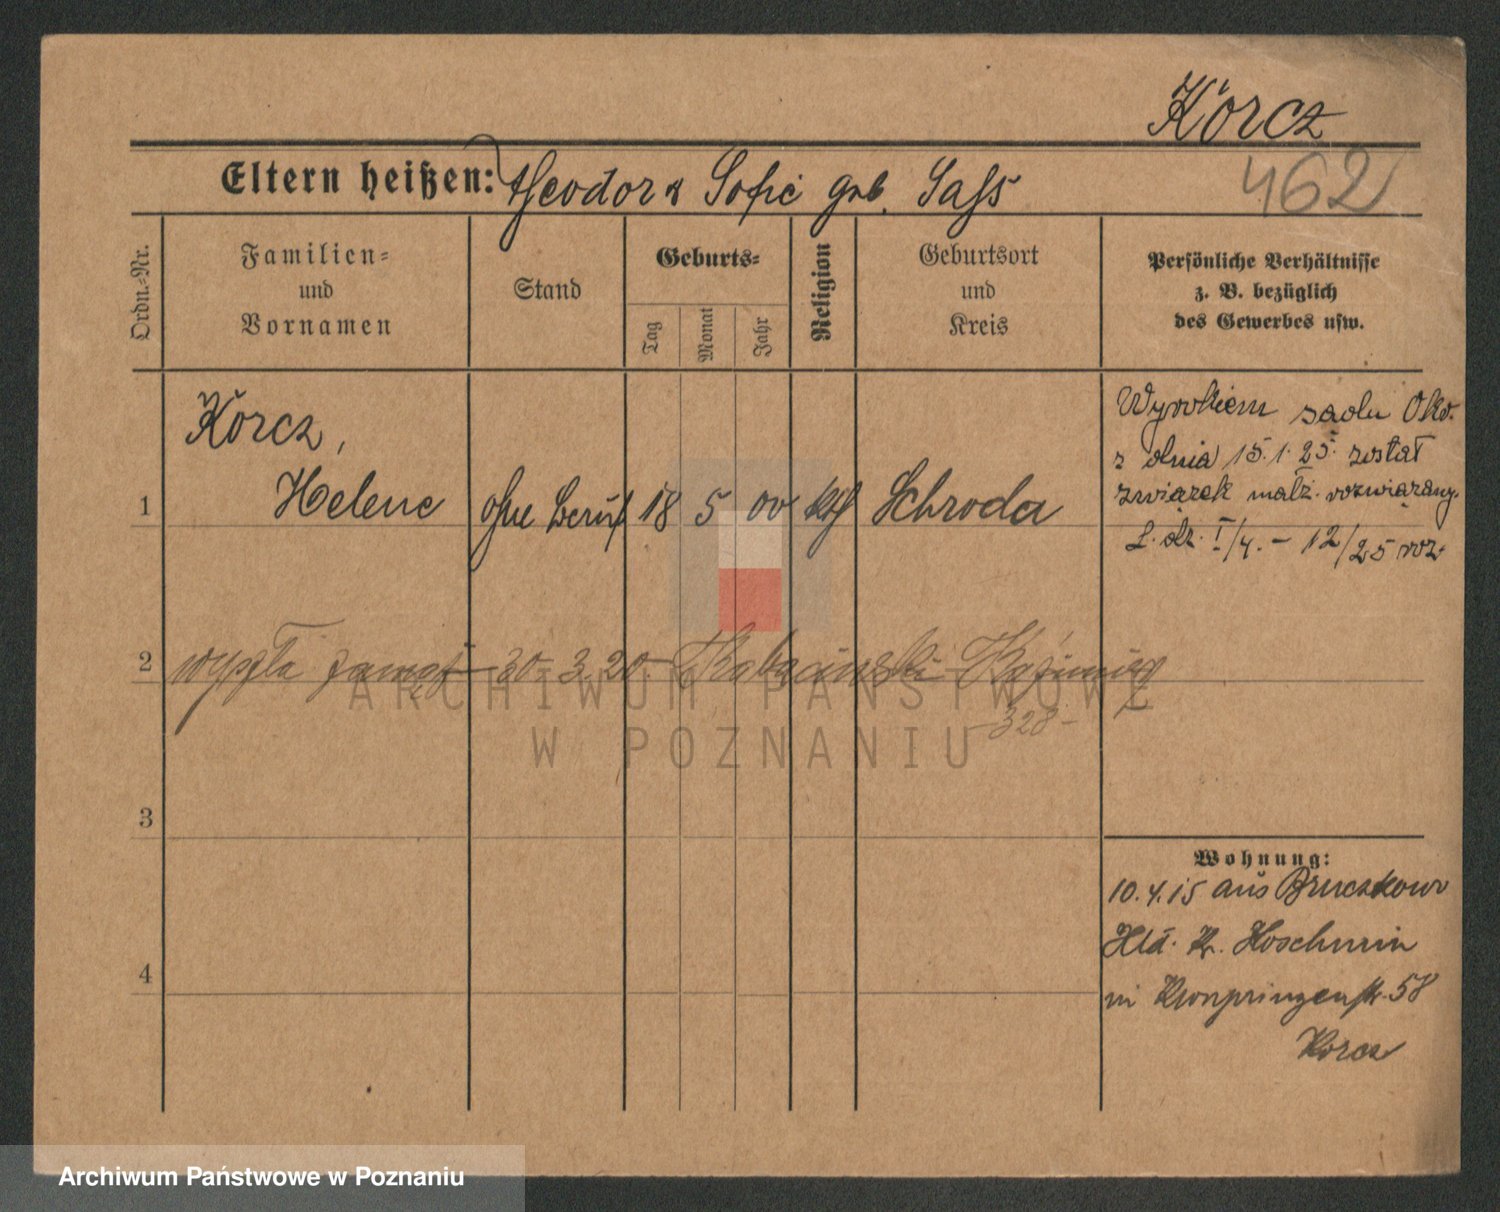 Korcz
462
Eltern heißen: Theodor & Sofie geb. Sass
Ordn.-Nr.
Familien-
und
Vornamen
Stand
Geburts-
Tag
Monat
Jahr
Religion
Geburtsort
und
Kreis
Persönliche Verhältnisse
z. B. bezüglich
des Gewerbes usw.
1
Korcz,
Helene
ohne Beruf 18 5 00 kth Schroda
Wyrokiem sadu Okr.
z dnia 15.1.25. został
związek małż. rozwiązany.
L. dz. I/4. - 12/25 roz
2
wyszła zamąż 30.3.20. Kazimierz
328-
3
4
Wohnung:
10.4.15 aus Bruczkow
Hld. Kr. Koschmin
in Kronprinzenstr. 58
Korcz
ARCHIWUM PAŃSTWOWE
W POZNANIU
Archiwum Państwowe w Poznaniu